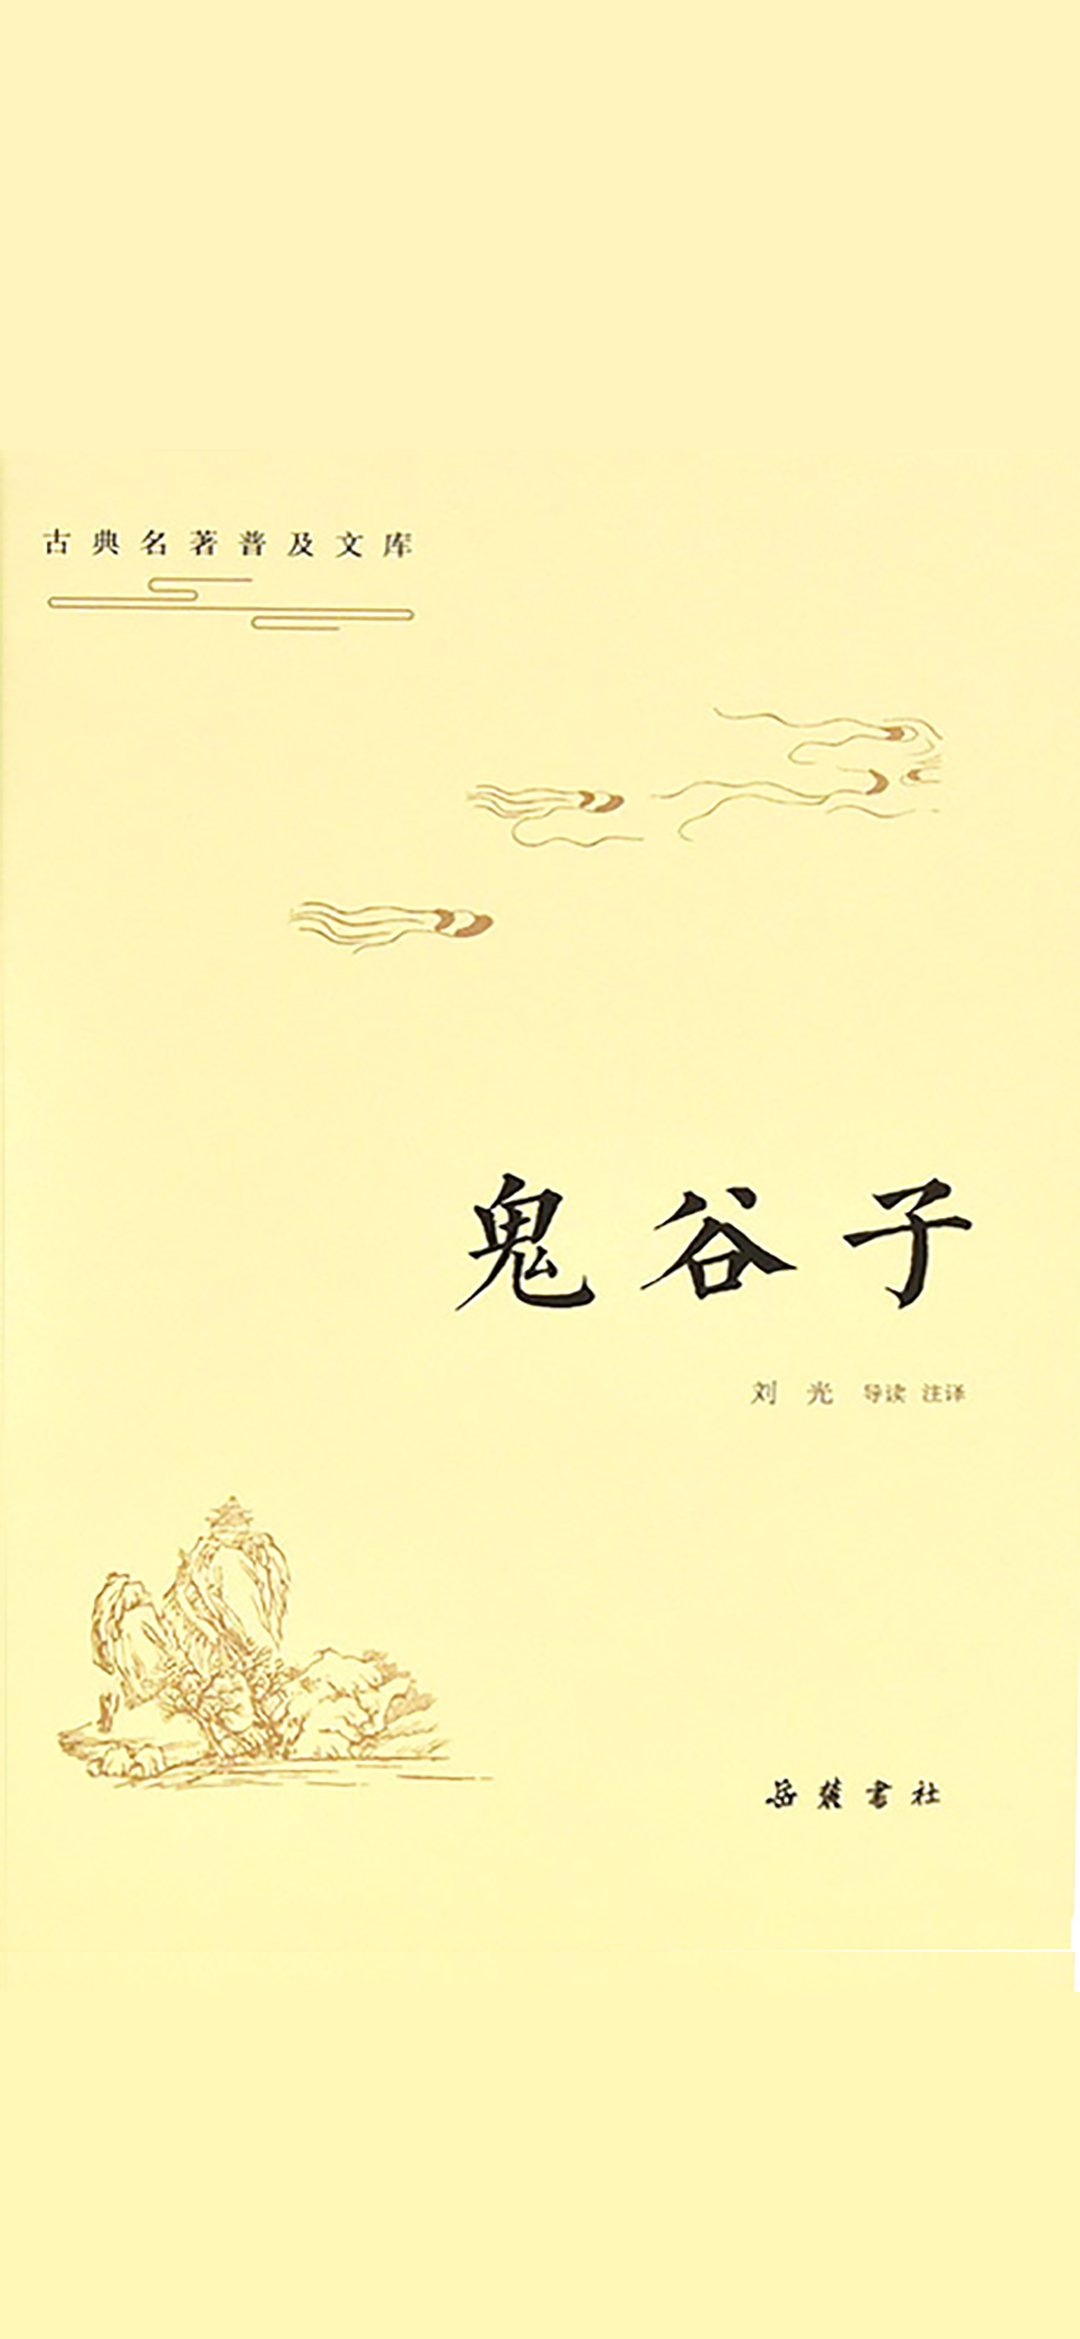 古典名著普及文库
鬼谷子
刘光 导读 注译
岳麓书社